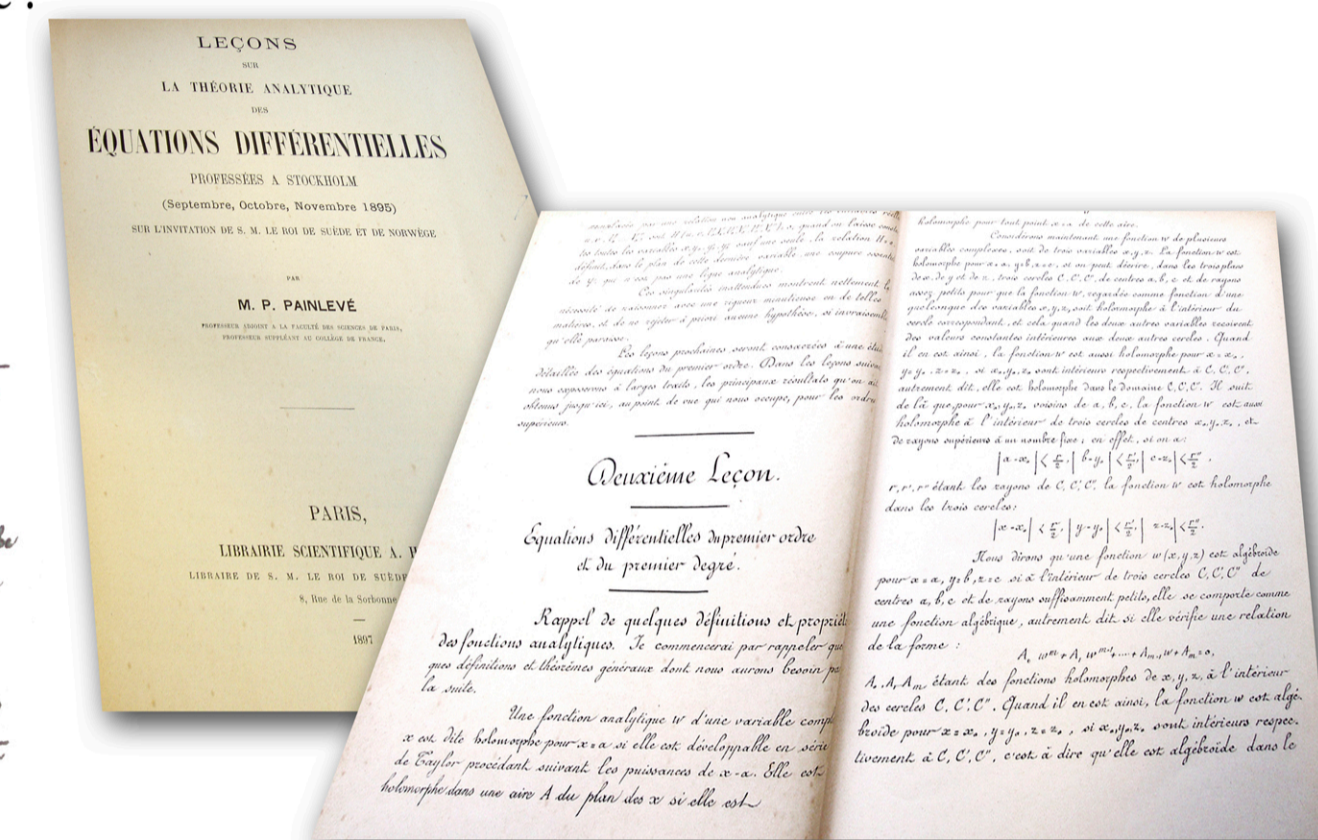 LEÇONS
SUR
LA THÉORIE ANALYTIQUE
DES
ÉQUATIONS DIFFÉRENTIELLES
PROFESSÉES A STOCKHOLM
(Septembre, Octobre, Novembre 1895)
SUR L'INVITATION DE S. M. LE ROI DE SUÈDE ET DE NORWÈGE
PAR
M. P. PAINLEVÉ
PROFESSEUR ADJOINT A LA FACULTÉ DES SCIENCES DE PARIS,
PROFESSEUR SUPPLÉANT AU COLLÈGE DE FRANCE.
PARIS,
LIBRAIRIE SCIENTIFIQUE A.
LIBRAIRE DE S. M. LE ROI DE SUÈDE
8, Rue de la Sorbonne
1897
par une relation non analytique
quand on laisse
toutes les variables sauf une seule, la relation
définit, dans le plan de cette dernière variable, une coupure
qui n'est pas une ligne analytique.
Ces singularités inattendues montrent nettement la
nécessité de raisonner avec une rigueur minutieuse en de telles
matières, et de ne rejeter à priori aucune hypothèse, si
qu'elle paraisse.
Les leçons prochaines seront consacrées à une
détaillée des équations du premier ordre. Dans les leçons
nous exposerons à larges traits, les principaux résultats qu'on
obtenus jusqu'ici, au point de vue qui nous occupe, pour les
supérieurs.
Deuxième Leçon.
Equations différentielles du premier ordre
et du premier degré.
Rappel de quelques définitions et
des fonctions analytiques. Je commencerai par rappeler
ques définitions et théorèmes généraux dont nous aurons besoin
la suite.
Une fonction analytique w d'une variable
x est dite holomorphe pour x=a si elle est développable en série
de Taylor procédant suivant les puissances de x-a. Elle est
holomorphe dans une aire A du plan des x si elle est
holomorphe pour tout point x=a de cette aire.
Considérons maintenant une fonction w de plusieurs
variables complexes, soit de trois variables x, y, z. La fonction w est
holomorphe pour x=a, y=b, z=c, si on peut décrire, dans les trois plans
de x, de y et de z, trois cercles C, C', C", de centres a, b, c et de rayons
assez petits pour que la fonction w, regardée comme fonction d'une
quelconque des variables x, y, z, soit holomorphe à l'intérieur du
cercle correspondant, et cela quand les deux autres variables reçoivent
des valeurs constantes intérieures aux deux autres cercles. Quand
il en est ainsi, la fonction w est aussi holomorphe pour x=x₀,
y=y₀, z=z₀, si x₀, y₀, z₀ sont intérieurs respectivement à C, C', C",
autrement dit, elle est holomorphe dans le domaine C, C', C". Il suit
de là que, pour x₀, y₀, z₀ voisins de a, b, c, la fonction w est aussi
holomorphe à l'intérieur de trois cercles de centres x₀, y₀, z₀, et
de rayons supérieurs à un nombre fixe ; en effet, si on a :
|a-x₀| < r/2, |b-y₀| < r'/2, |c-z₀| < r"/2,
r, r', r" étant les rayons de C, C', C", la fonction w est holomorphe
dans les trois cercles :
|x-x₀| < r/2, |y-y₀| < r'/2, |z-z₀| < r"/2.
Nous dirons qu'une fonction w(x, y, z) est algébroïde
pour x=a, y=b, z=c si à l'intérieur de trois cercles C, C', C" de
centres a, b, c et de rayons suffisamment petits, elle se comporte comme
une fonction algébrique, autrement dit si elle vérifie une relation
de la forme :
A₀ wᵐ + A₁ wᵐ⁻¹ + .... + Aₘ₋₁ w + Aₘ = 0,
A₀, A₁, Aₘ étant des fonctions holomorphes de x, y, z, à l'intérieur
des cercles C, C', C". Quand il en est ainsi, la fonction w est algé-
broïde pour x=x₀, y=y₀, z=z₀, si x₀, y₀, z₀ sont intérieurs respec-
tivement à C, C', C", c'est à dire qu'elle est algébroïde dans le